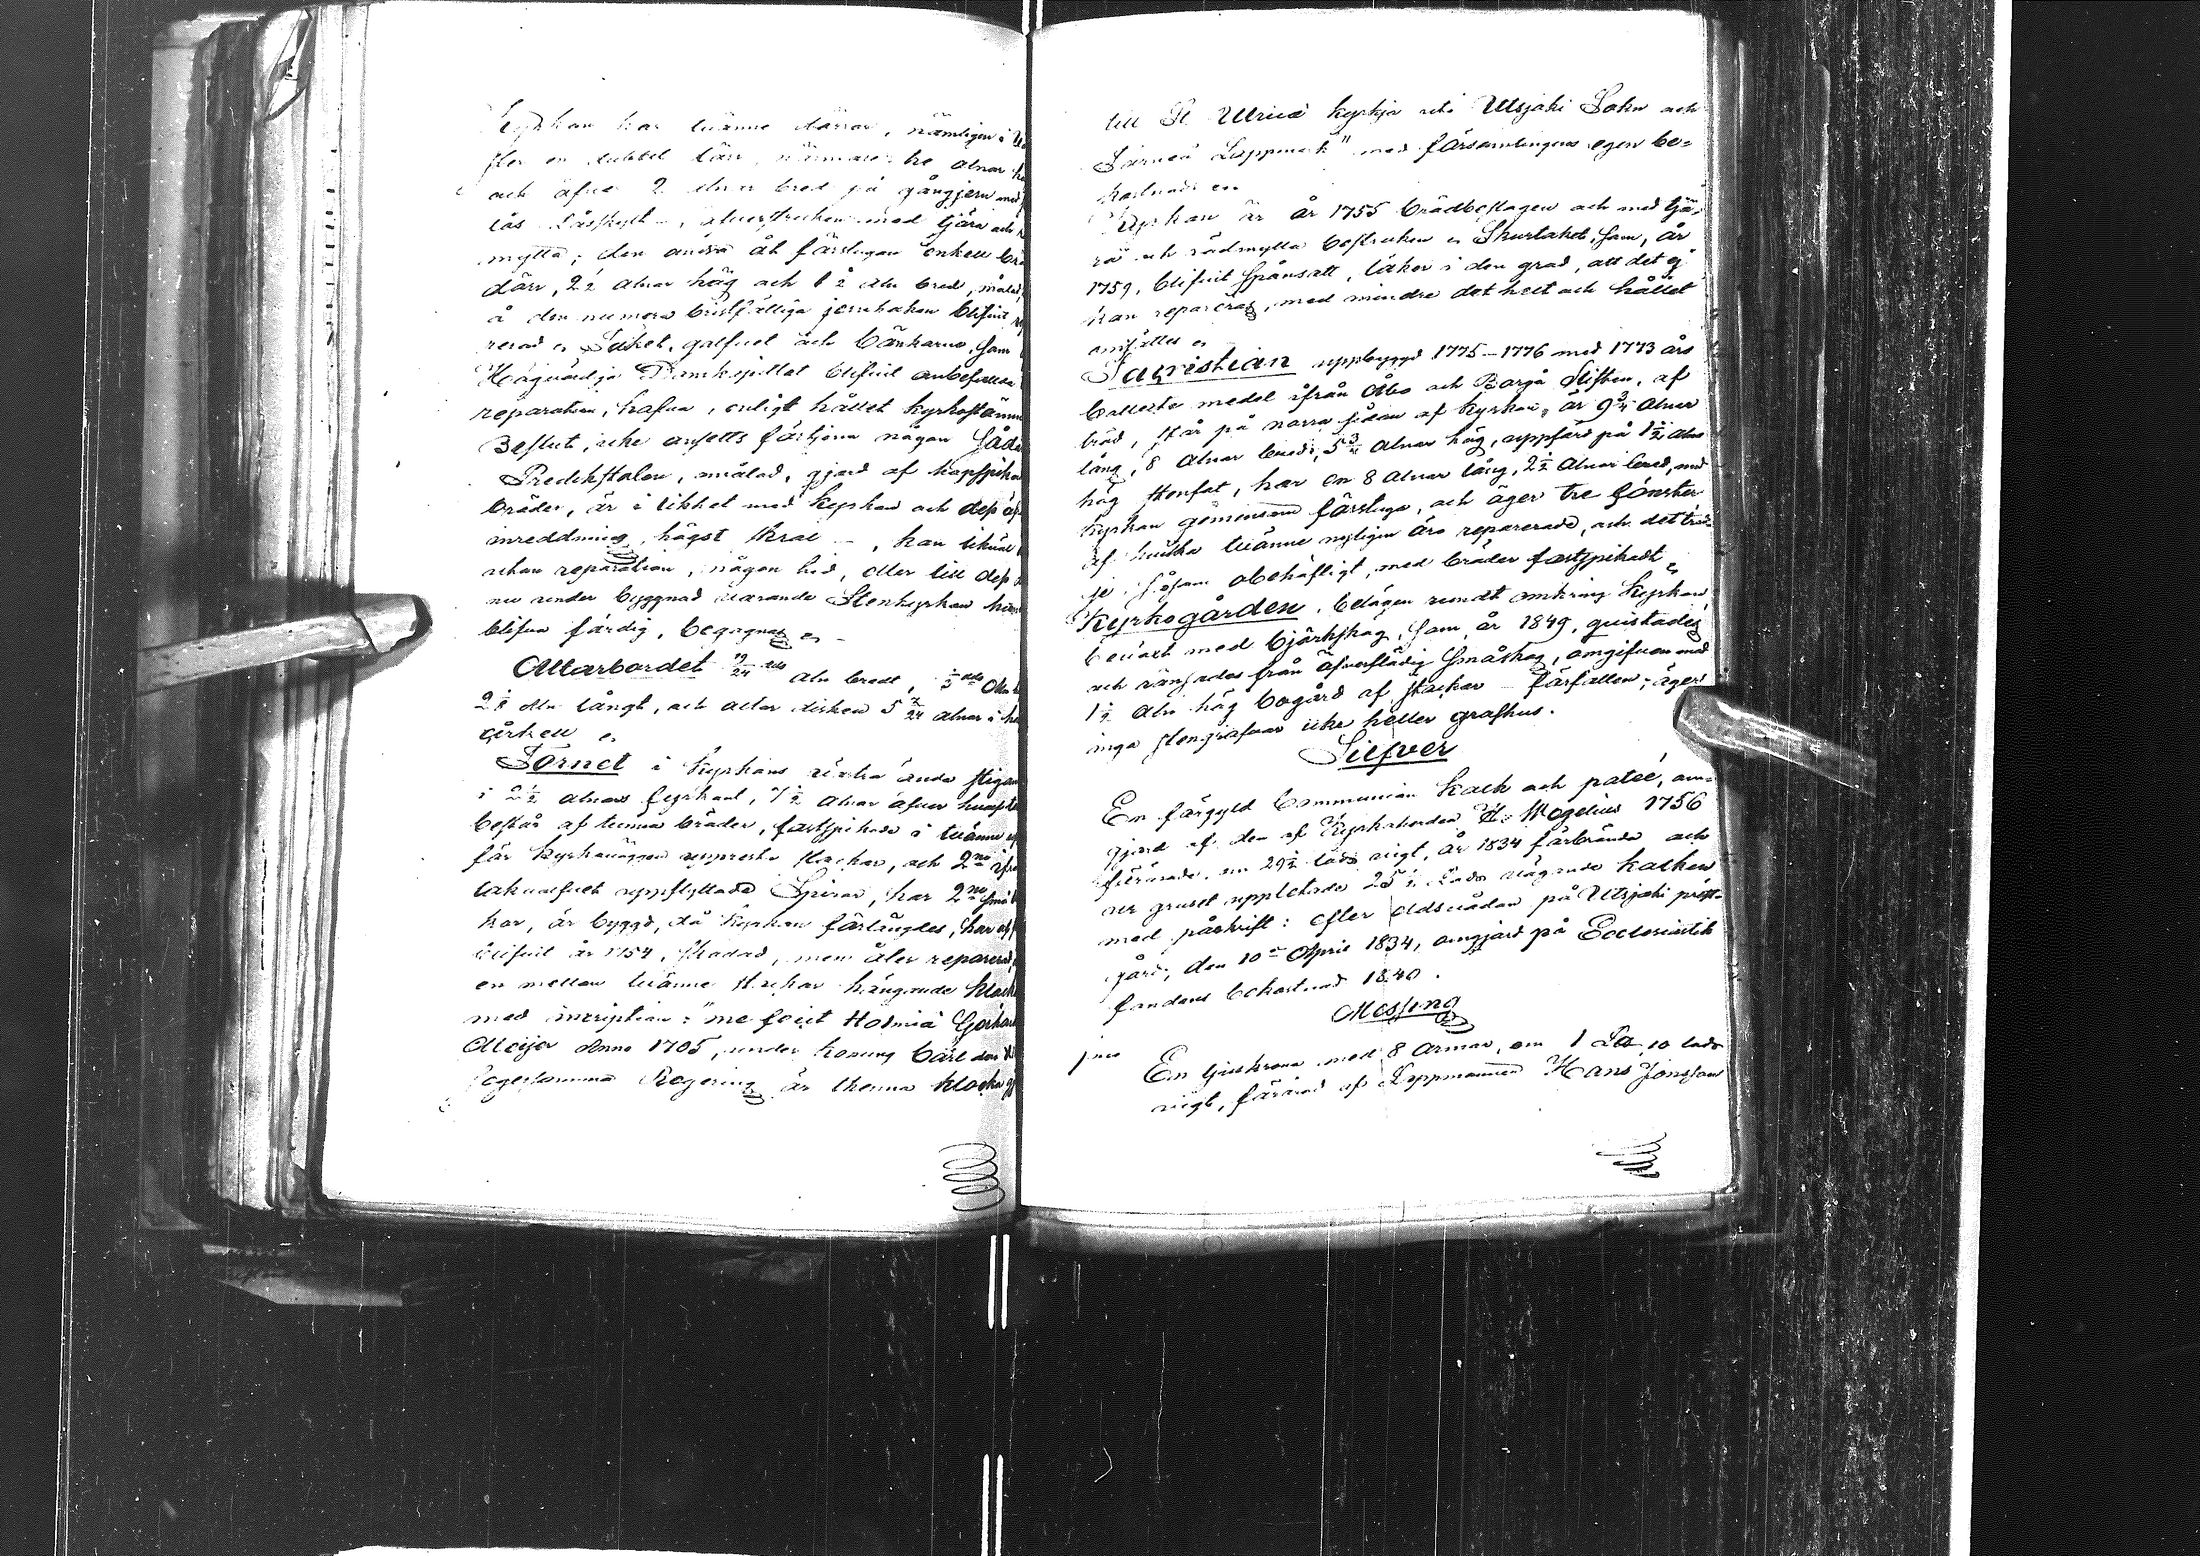 Kyrkan har tvänne dörrar, nämligen i
en dubbel dörr, närmare tre alnar
och öfver 2 alnar bred på gångjern med
lås Låsskylt –, öfverstruken med tjära och
mylla; den andra åt förstugan enkel
dörr, 2½ alnar hög och 1½ aln bred, målad,
å den numera bristfälliga jernhakan blifvit
rerad. Taket, golfvet och bänkarne, som
Högvördiga Domkapitlet blifvit anbefallda
reparation, hafva, enligt hållet kyrkostämmo
Beslut, icke ansetts förtjena någon
Predikstolen, målad, gjord af
bräder, är i likhet med kyrkan och dess
inreddning, högst skral –, kan likväl
utan reparation, någon tid, eller till dess
nu under byggnad varande Stenkyrkan
blifva färdig, begagnas
Altarbordet 19/24 dels aln bredt,
2⅛ aln långt, och altar disken 5 7/24 alnar i
cirkeln
Tornet i kyrkans vestra ända
i 2½ alnars fyrkant, 7½ alnar öfver
består af tunna bräder, fastspikade i tvänne
för kyrkväggen uppresta stockar, och 2ne
takhvalfvet uppflyttade Spiror, har 2ne små
kor, är byggd, då kyrkan förlängdes, har
blifvit år 1754, skadad, men åter reparerad,
en mellan tvänne stockar hängande
med inscription: "me fecit Holmiæ Gerhard
Meijer Anno 1705, under konung Carl den
Segersamma Regering är thenna klocka
till St Ulricæ kyrkja uti Utsjoki Sokn och
Lappmark" med församlingens egen be-
kostnad
Kyrkan är år 1755 brädbeslagen och med tjä-
ra och rödmylla bestruken. Skurtaket, som, år
1759, blifvit spånsatt, läker i den grad, att det ej
kan repareras, med mindre det helt och hållet
omsättes
Sacristian uppbyggd 1775–1776 med 1773 års
Collecte medel ifrån Åbo och Borgå Stiften, af
bräd, står på norra sidan af kyrkan, är 9¾ alnar
lång, 8 alnar bred, 5¾ alnar hög, uppförd på 1½ alns
hög stenfot, har en 8 alnar lång, 2½ alnar bred, med
kyrkan gemensam förstuga, och äger tre fönster
af hvilka tvänne nyligen äro reparerade, och det tred-
je såsom obehöfligt, med bräder fastspikadt
Kyrkogården, belägen rundt omkring kyrkan
beväxt med björkskog, som, år 1849, qvistades
och ränsades från öfverflödig småskog, omgifven med
1½ aln hög bogård af stockar – förfallen; äger
inga stengrafvar icke heller grafhus.
Silfver
En förgyld Communion Kalk och paten, om-
gjord af den af Kyrkoherden H. Wegelius 1756
förärade, en 29½ lods vigt, år 1834 förbrände och
ur gruset uppletade 25½ Lods vägande kalken
med påskrift: efter eldsvådan på Utsjoki prest-
gård, den 10de April 1834, omgjord på Ecclesiastik
fondens bekostnad 1840.
Messing
En ljuskrona med 8 armar, om 1 10 lods
vigt, förärad af Lappmannen Hans Jonsson